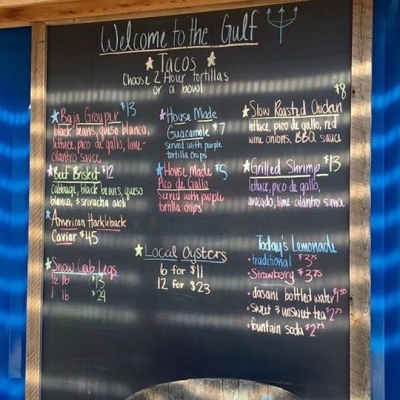 Welcome to the Gulf
Tacos
Choose 2 flour tortillas
or a bowl
Baja Grouper $13
black beans, queso blanco,
lettuce, pico de gallo, lime-
cilantro sauce
Beef Brisket $12
cabbage, black beans, queso
blanco, & sriracha aioli
American Hackleback
Caviar $45
Snow Crab Legs
1/2 lb $13
1 lb $24
House Made
Guacamole $7
served with purple
tortilla chips
House Made $5
Pico de Gallo
Served with purple
tortilla chips
Local Oysters
6 for $11
12 for $23
$8
Slow Roasted Chicken
lettuce, pico de gallo, red
wine onions, BBQ sauce
Grilled Shrimp $13
lettuce, pico de gallo,
avocado, lime-cilantro sauce
Today's Lemonade
• traditional $3.75
• Strawberry $3.75
• dasani bottled water $1.50
• sweet & unsweet tea $2.75
• fountain soda $2.75